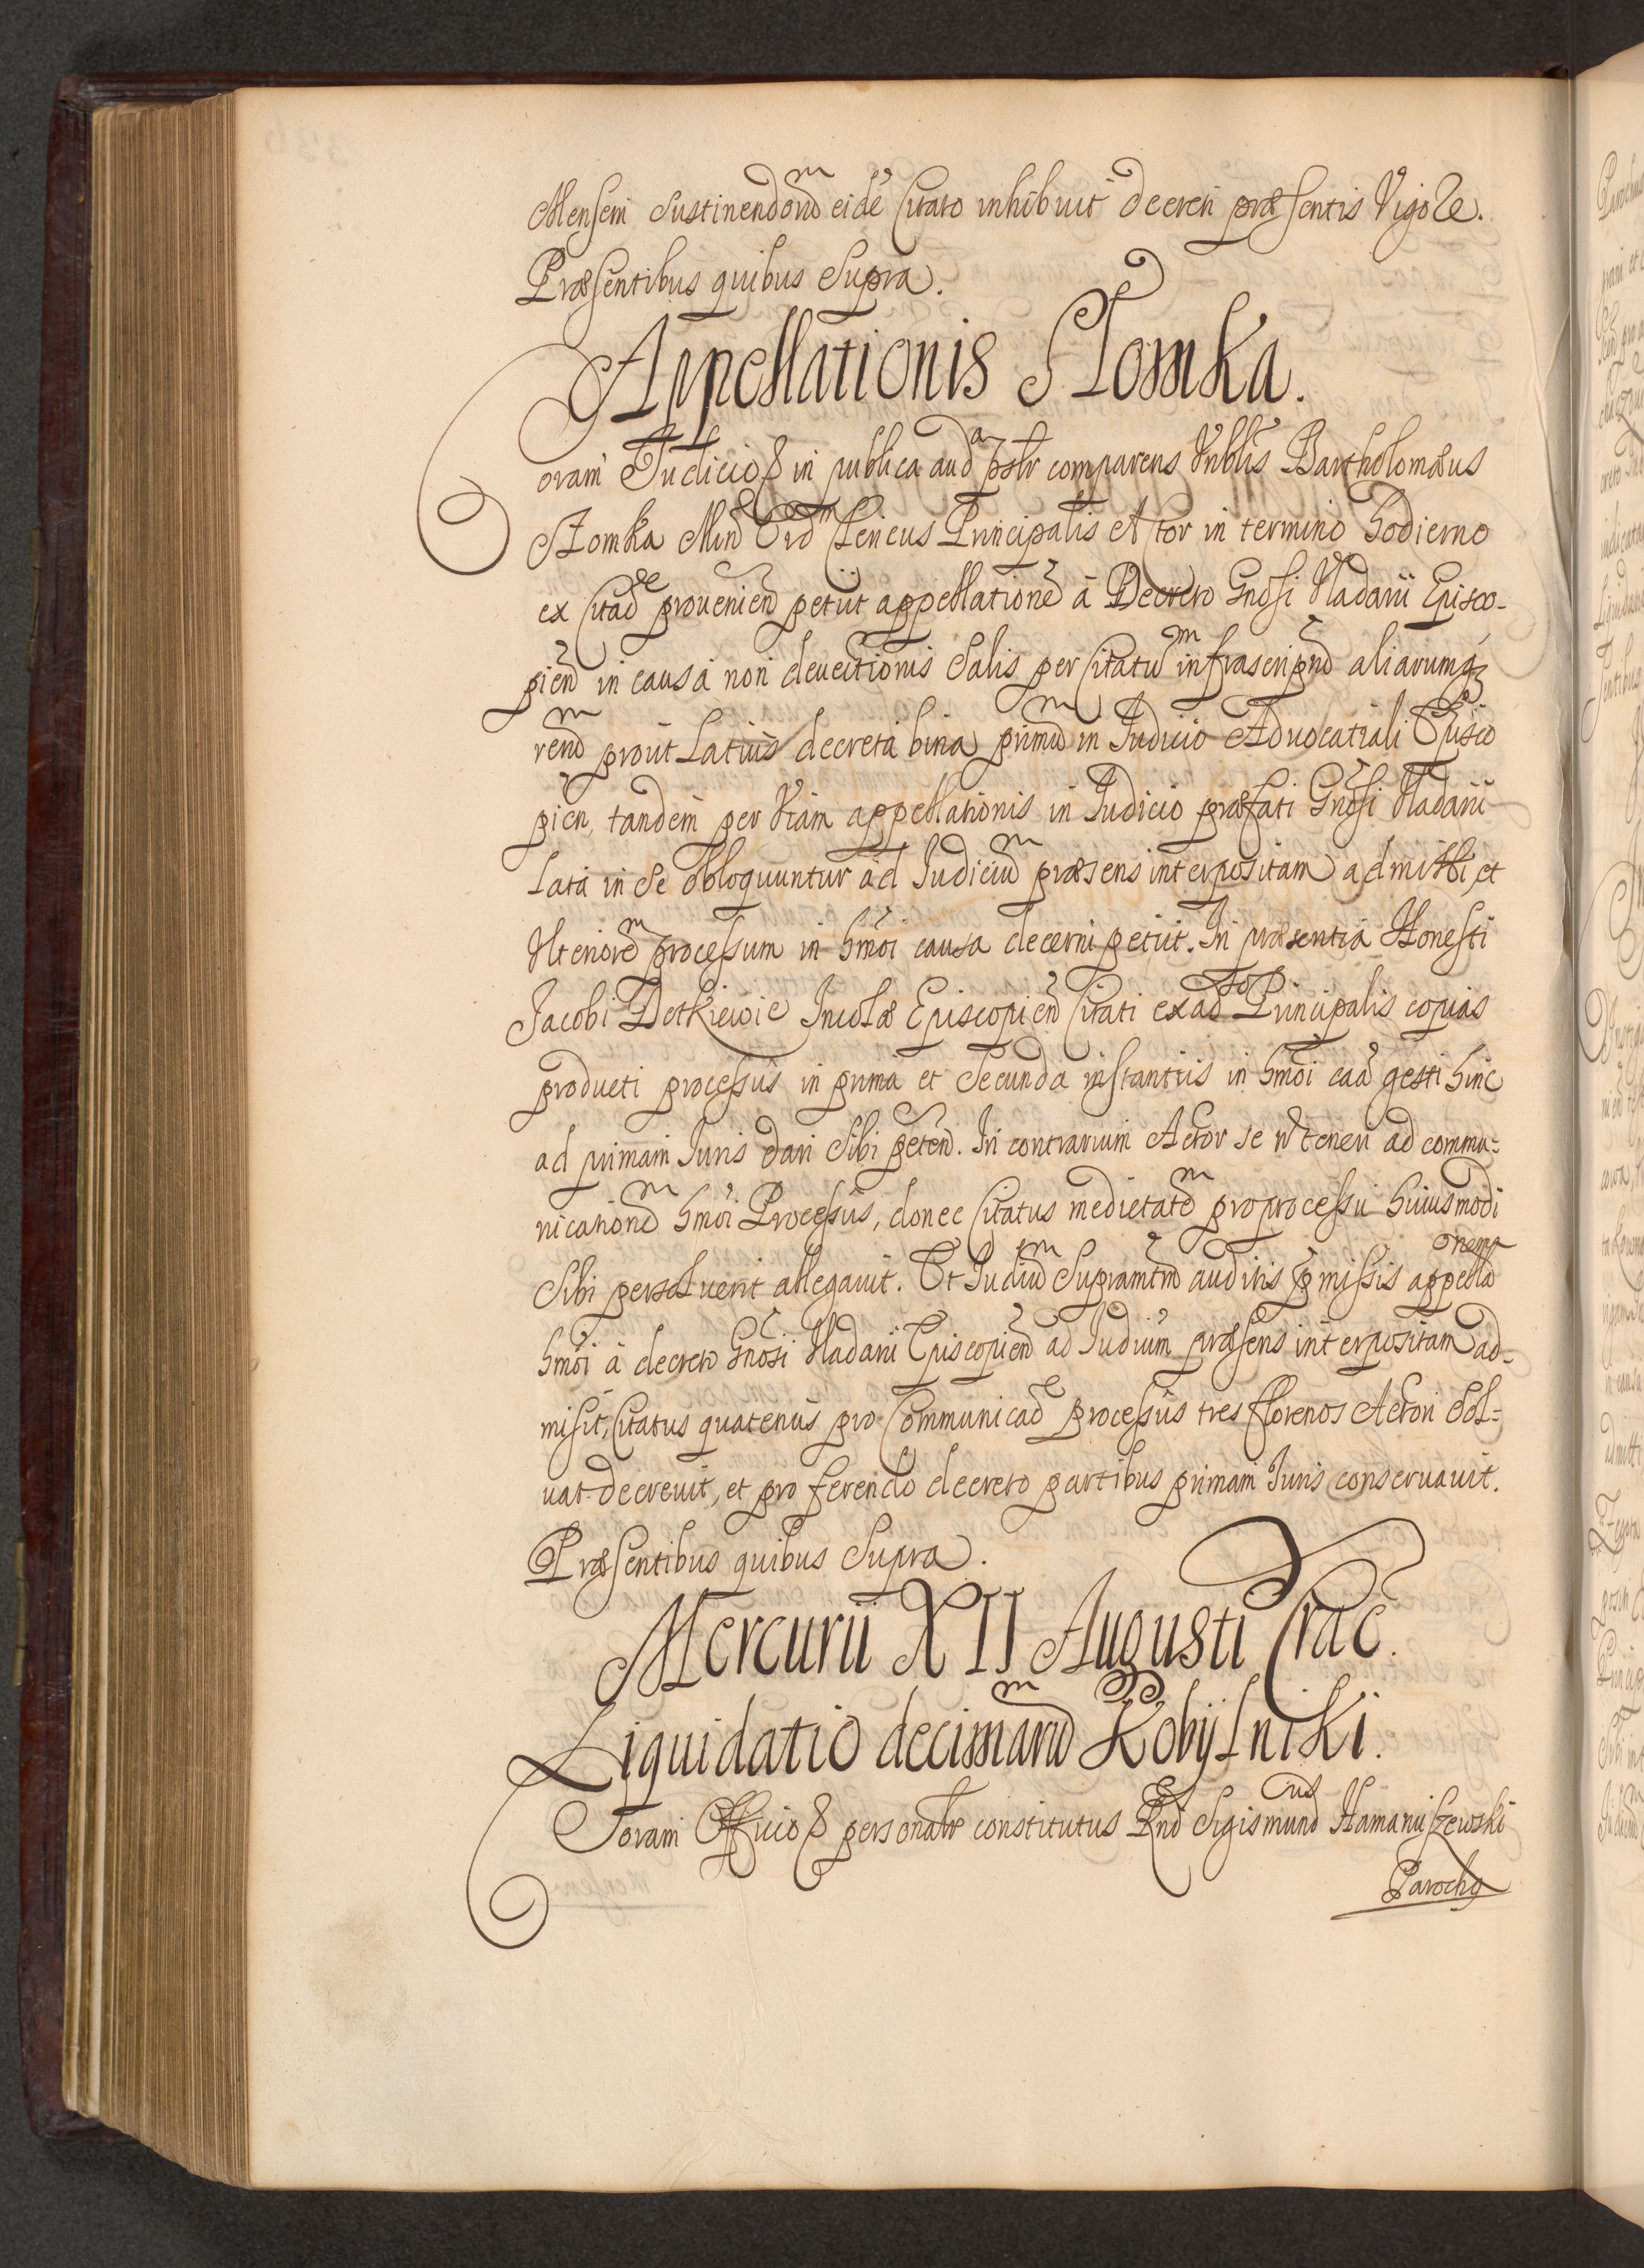 Mensem sustinendoru͂m eide͂ Citato inhibuit decreti præsentis Vigore.
Præsentibus quibus Supra.
Appellationis Słomka.
Coram Judicio & in publica auda͂ pstr comparens Vnblis Bartholomæus
Słomka Min Ord Clericus Principalis Actor in termino hodierno
ex Citade prouenien͂ petiit appellatione͂ à Decreto Gnosi Vladarii Episco-
pien͂ in causa non deuectionis Salis per Citatu͂m infrascriptu͂ aliarumq3
reru͂m prout Latius decreta bina primu͂m in Judicio Aduocatiali Episco
pien, tandem per Viam appellationis in Judicio præfati Gnosi Vladarii
Lata in se obloquuntur ad Judiciu͂m præsens interpositam admitti, et
Vlteriore͂m processum in hmoi causa decerni petiit. In præsentia Honesti
Jacobi Detkiewic Incolæ Episcopien͂ Citati ex ad͂so Principalis copias
producti processus in prima et Secunda instantiis in hmoi caa͂ gesti hinc
ad primam Juris dari Sibi peten͂. In contrarium Actor se n͂ teneri ad commu-
nicatione͂m hmoi Processus, donec Citatus medietate͂m pro processu huiusmodi
Sibi persoluerit allegauit. Et Judiu͂m Supramtm auditis p͂missis appella͂onem
hmoi à decreto Gnosi Vladarii Episcopien͂ ad Judium præsens interpositam ad-
misit, Citatus quatenus pro Communicade͂ processus tres florenos Actori Sol-
uat decreuit, et pro ferendo decreto partibus primam Juris conseruauit.
Præsentibus quibus Supra.
Mercurii XII Augusti Crac.
Liquidatio decimaru͂m Kobylniki.
Coram Officio & personalr constitutus Rnd Sigismundus Hamaniszewski
Parochq